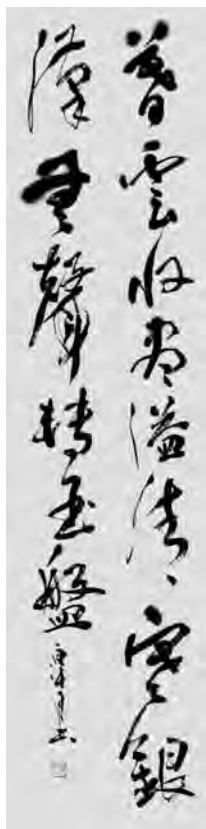 暮雲收盡溢清寒銀
漢無聲轉玉盤